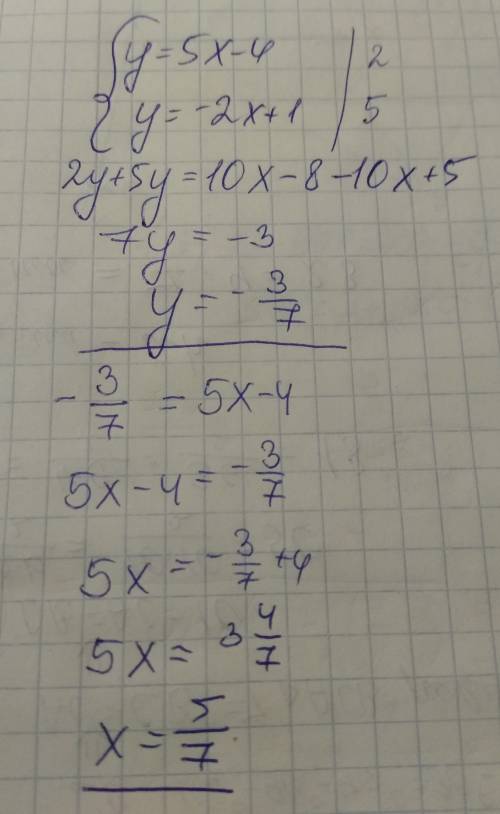 y = 5x - 4 | 2
y = -2x + 1 | 5
2y + 5y = 10x - 8 - 10x + 5
7y = -3
y = - 3/7
- 3/7 = 5x - 4
5x - 4 = - 3/7
5x = - 3/7 + 4
5x = 3 4/7
x = 5/7